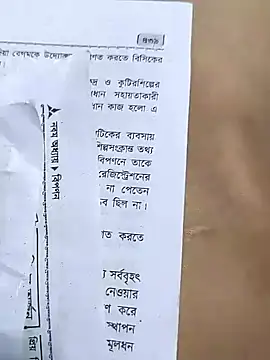 ৪৩৯
দিয়া বেগমকে উদ্যোক্তা
গত করতে বিসিকের
ও কুটিরশিল্পের
সহায়তাকারী
কাজ হলো এ
টিকের ব্যবসায়
শিল্পসংক্রান্ত তথ্য
বিপণনে তাকে
রেজিস্ট্রেশনের
না পেতেন
ব ছিল না।
ত করতে
সর্ববৃহৎ
নেওয়ার
ণ করে
স্থাপন
মূলধন
নবম অধ্যায় বিপণন